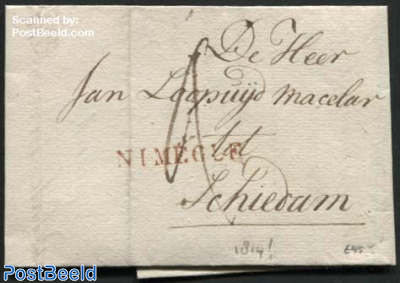 Scanned by:
PostBeeld.com
De Heer
Jan Loopuijd Macelar
tot
NIMÈGUE
Schiedam
1814!
£45
PostBeeld